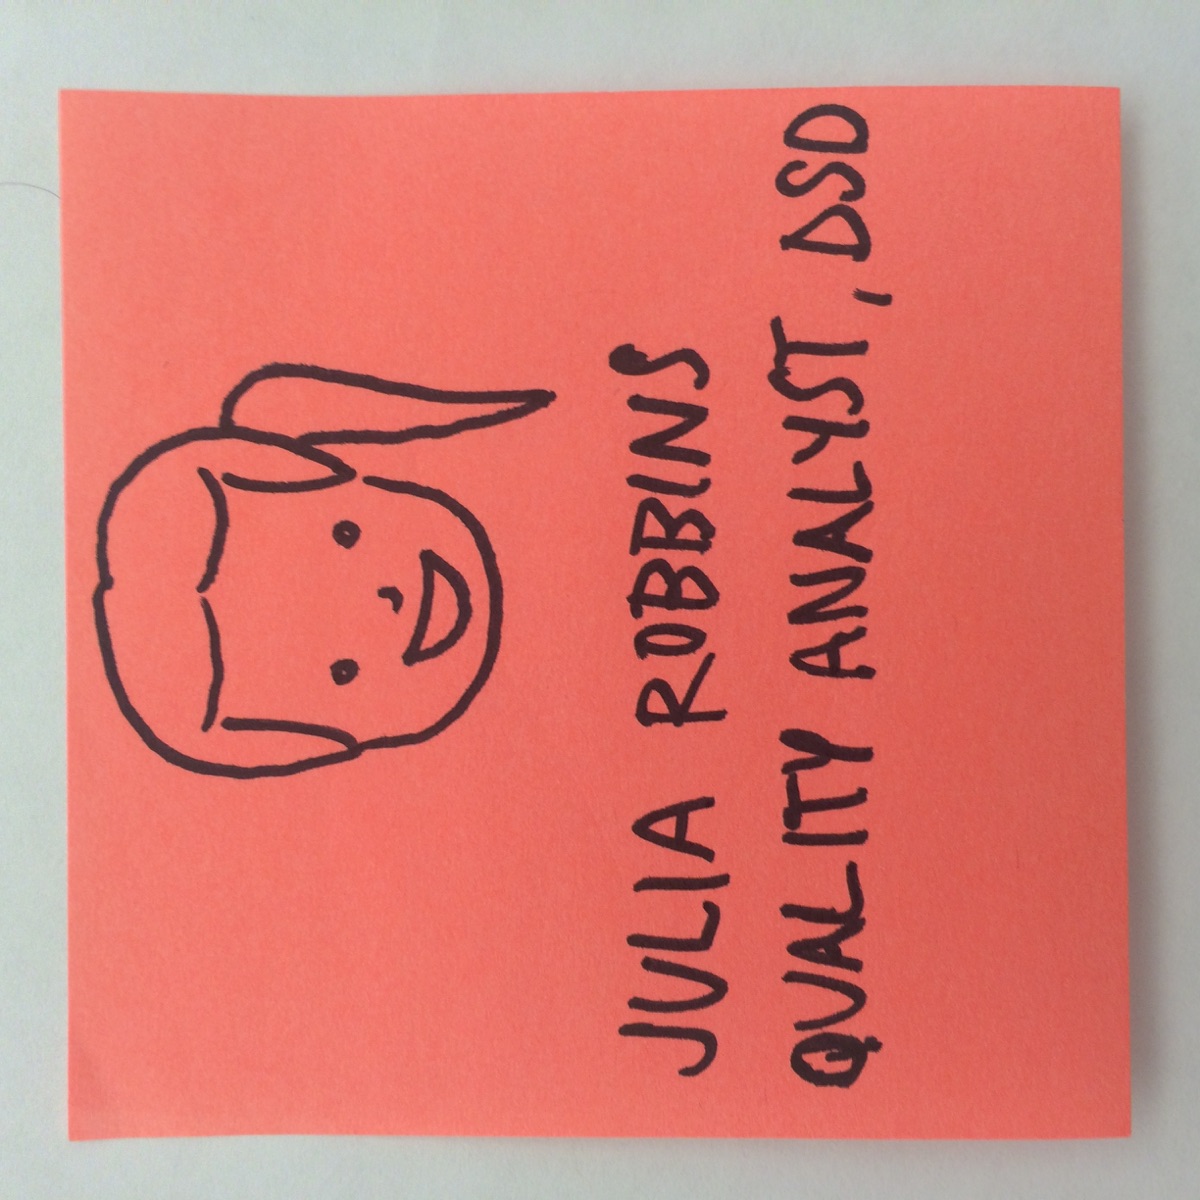 JULIA ROBBINS
QUALITY ANALYST, DSD